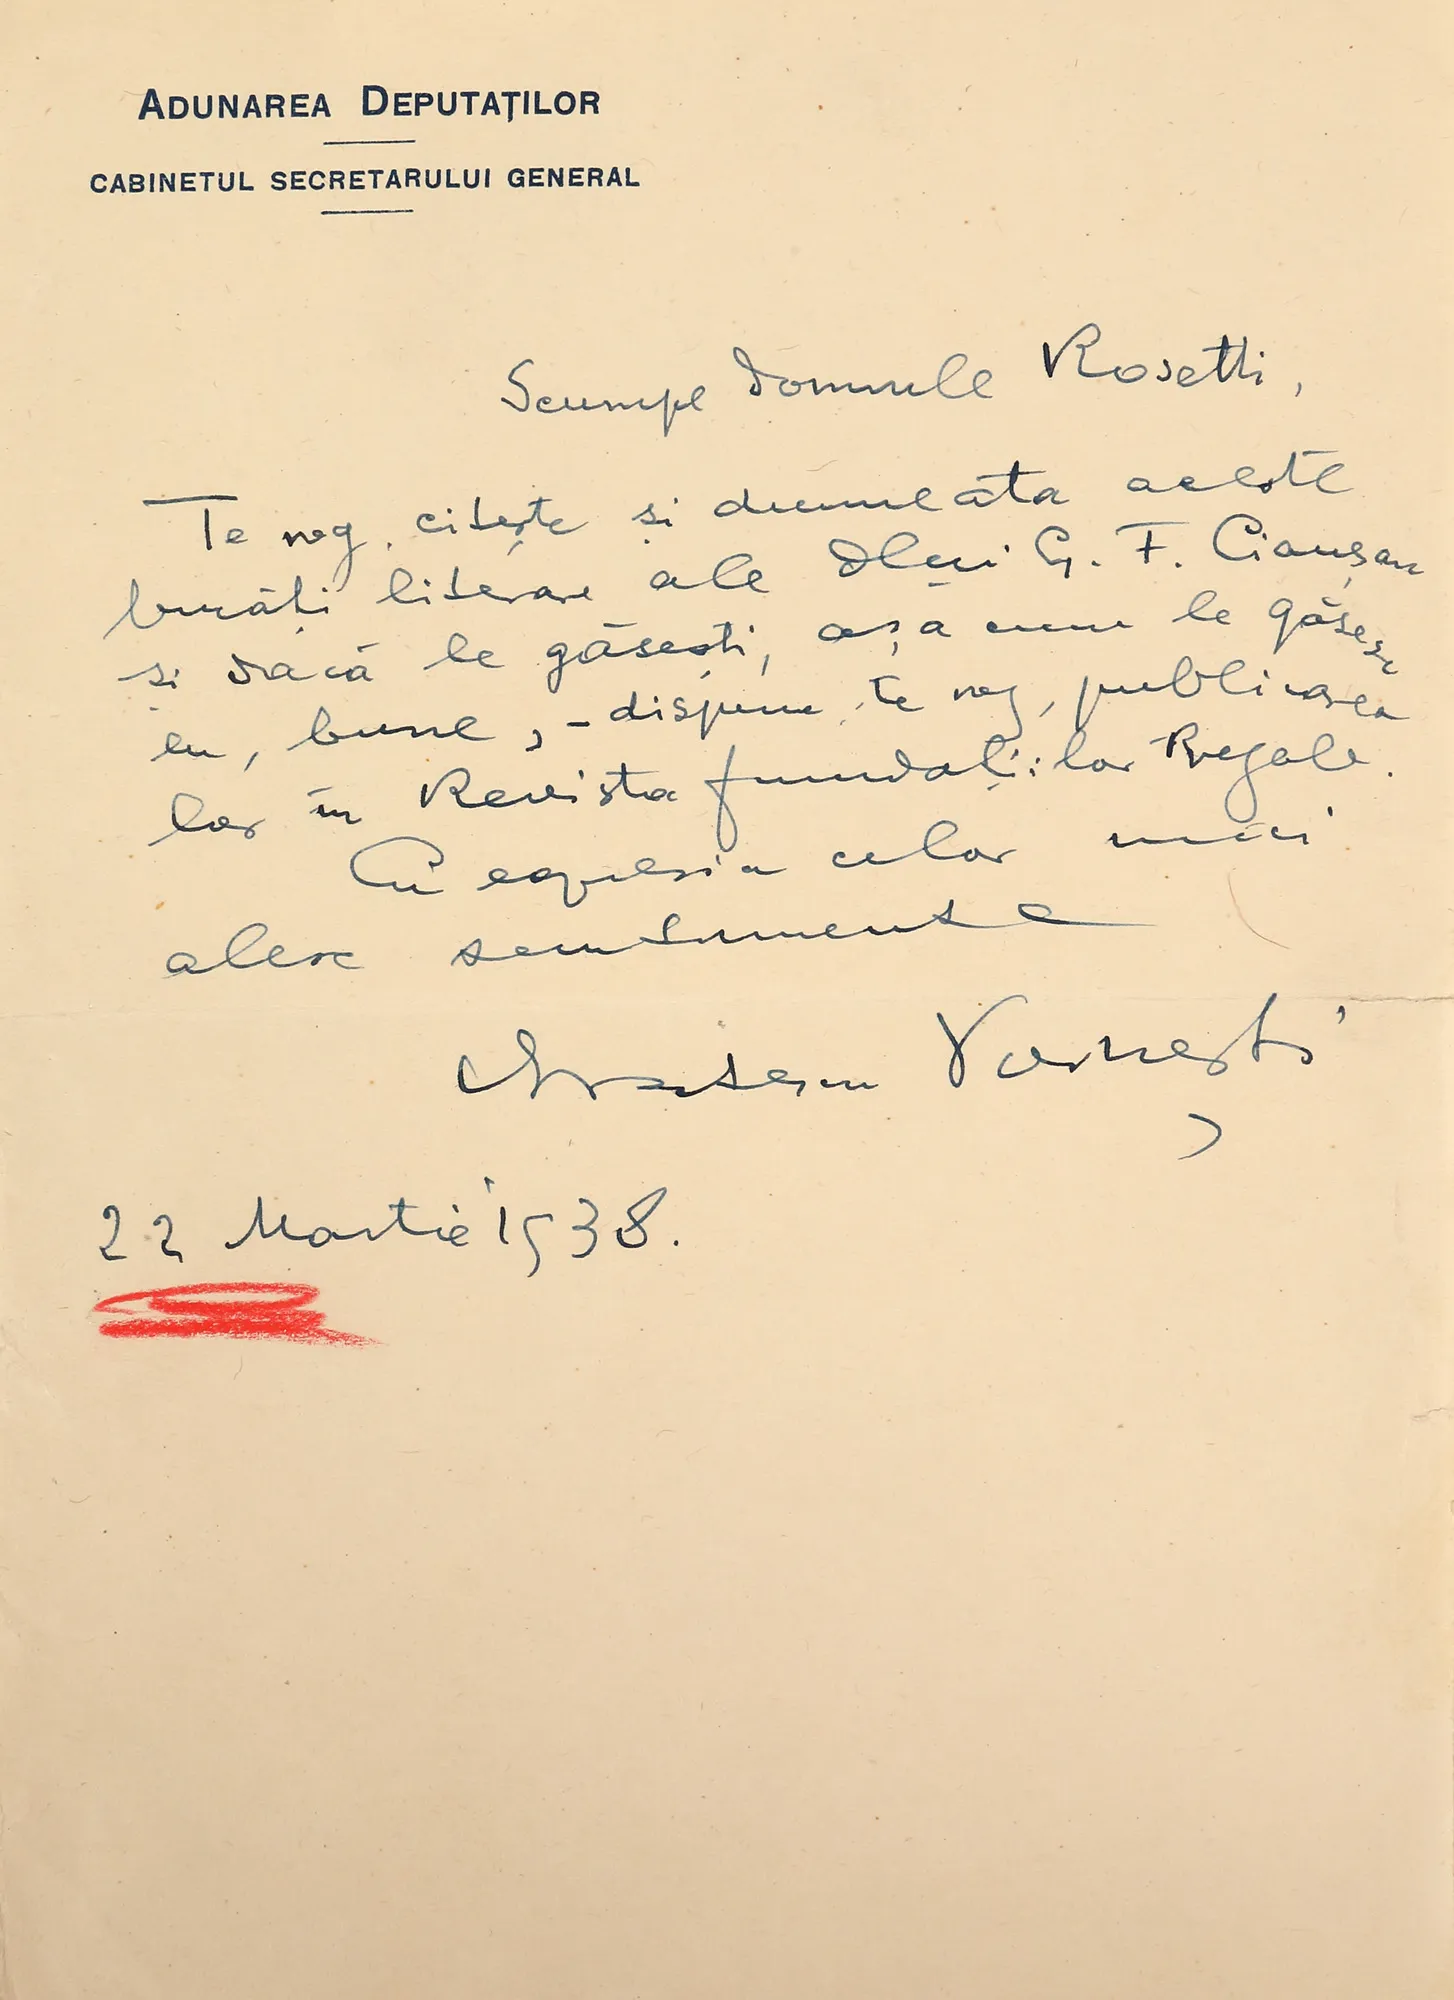 ADUNAREA DEPUTAȚILOR
CABINETUL SECRETARULUI GENERAL
Scumpe domnule Rosetti,
Te rog, citește și dumneata aceste
bucăți literare ale Dlui G. F. Ciaușan
și dacă le găsești, așa cum le găsesc
eu, bune, – dispune, te rog, publicarea
lor în Revista fundațiilor Regale.
Cu expresia celor mai
alese sentimente
Voinești
22 Martie 1938.